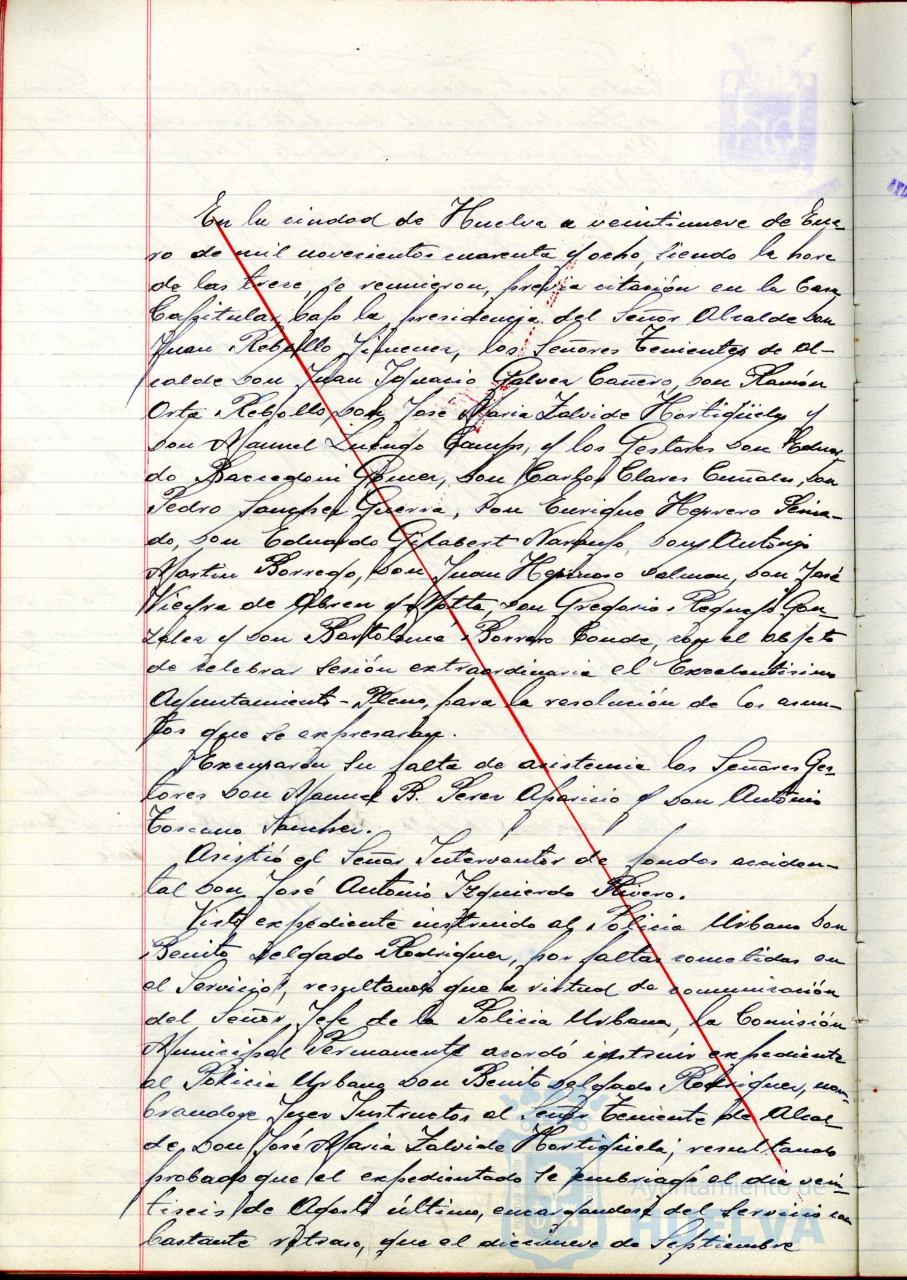 En la ciudad de Huelva a veintinueve de Ene-
ro de mil novecientos cuarenta y ocho, siendo la hora
de las trece, se reunieron, previa citación en la Casa
Capitular bajo la presidencia del Señor Alcalde Don
Juan Rebollo Jimenez, los Señores Tenientes de Al-
calde Don Juan Ignacio Galvez Cañero, Don Ramón
Orta Rebollo, Don José Maria Zalvide Hortigüela y
Don Manuel Luengo Camps, y los Gestores Don Eduar-
do Gomez, Don Carlos Clares Don
Pedro Sanchez Guerra, Don Enrique Herrero Peina-
do, Don Eduardo Gilabert Naranjo, Don Antonio
Martin Borrego, Don Juan Hermoso Don José
Vieyra de Abreu y Motta, Don Gregorio Requejo Gon
zalez y Don Bartolomé Borrero Conde, con el objeto
de celebrar sesión extraordinaria el Excelentisimo
Ayuntamiento-Pleno, para la resolución de los asun-
tos que se expresaran.
Excusaron su falta de asistencia los Señores Ges-
tores Don Manuel B. Perez Aparicio y Don Antonio
Toscano Sanchez.
Asistió el Señor Interventor de fondos acciden-
tal Don José Antonio Izquierdo Rivero.
Visto expediente instruido al Policia Urbano Don
Benito Delgado Rodriguez, por faltas cometidas en
el Servicio, resultando que a virtud de comunicación
del Señor Jefe de la Policia Urbana, la Comisión
Municipal Permanente acordó instruir expediente
al Policia Urbano Don Benito Delgado Rodriguez, nom-
brandose Juez Instructor al Señor Teniente de Alcal
de, Don José Maria Zalvide Hortigüela; resultando
probado que el expedientado se embriagó el dia vein-
tiseis de Agosto último, encargandose del Servicio con
bastante retraso, que el diecinueve de Septiembre
Ayuntamiento de
HUELVA